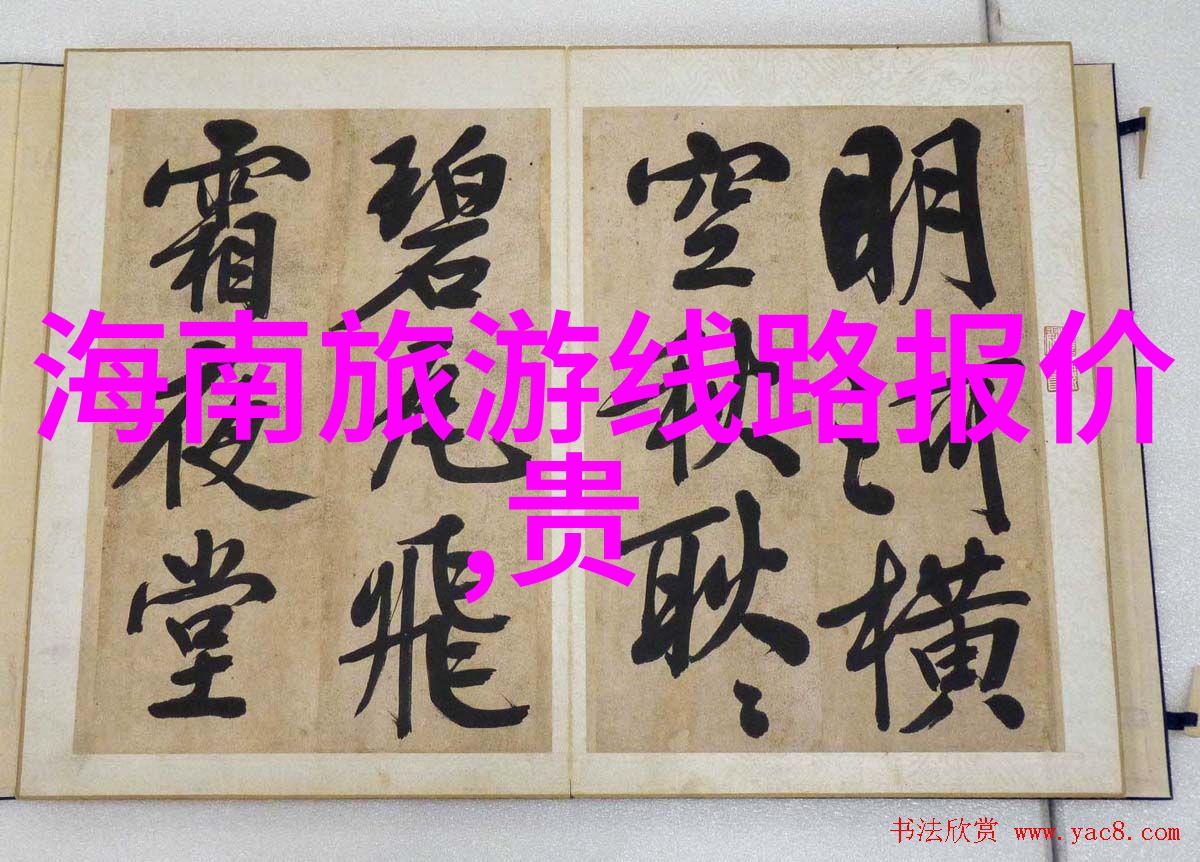 明河横
空秋耿〻
碧瓦飛
霜夜堂
海南旅游线路报价
,贵
书法欣赏 www.yac8.com